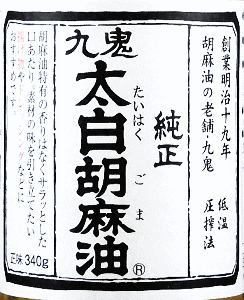 創業明治十九年
胡麻油の老舗九鬼
低温
圧搾法
純正
九鬼
太白胡麻油®
たいはく ごま
胡麻油特有の香りはなくサラッとした
口あたり。素材の味を引き立てたい
揚げ物やドレッシングなどに
おすすめです。
正味340g